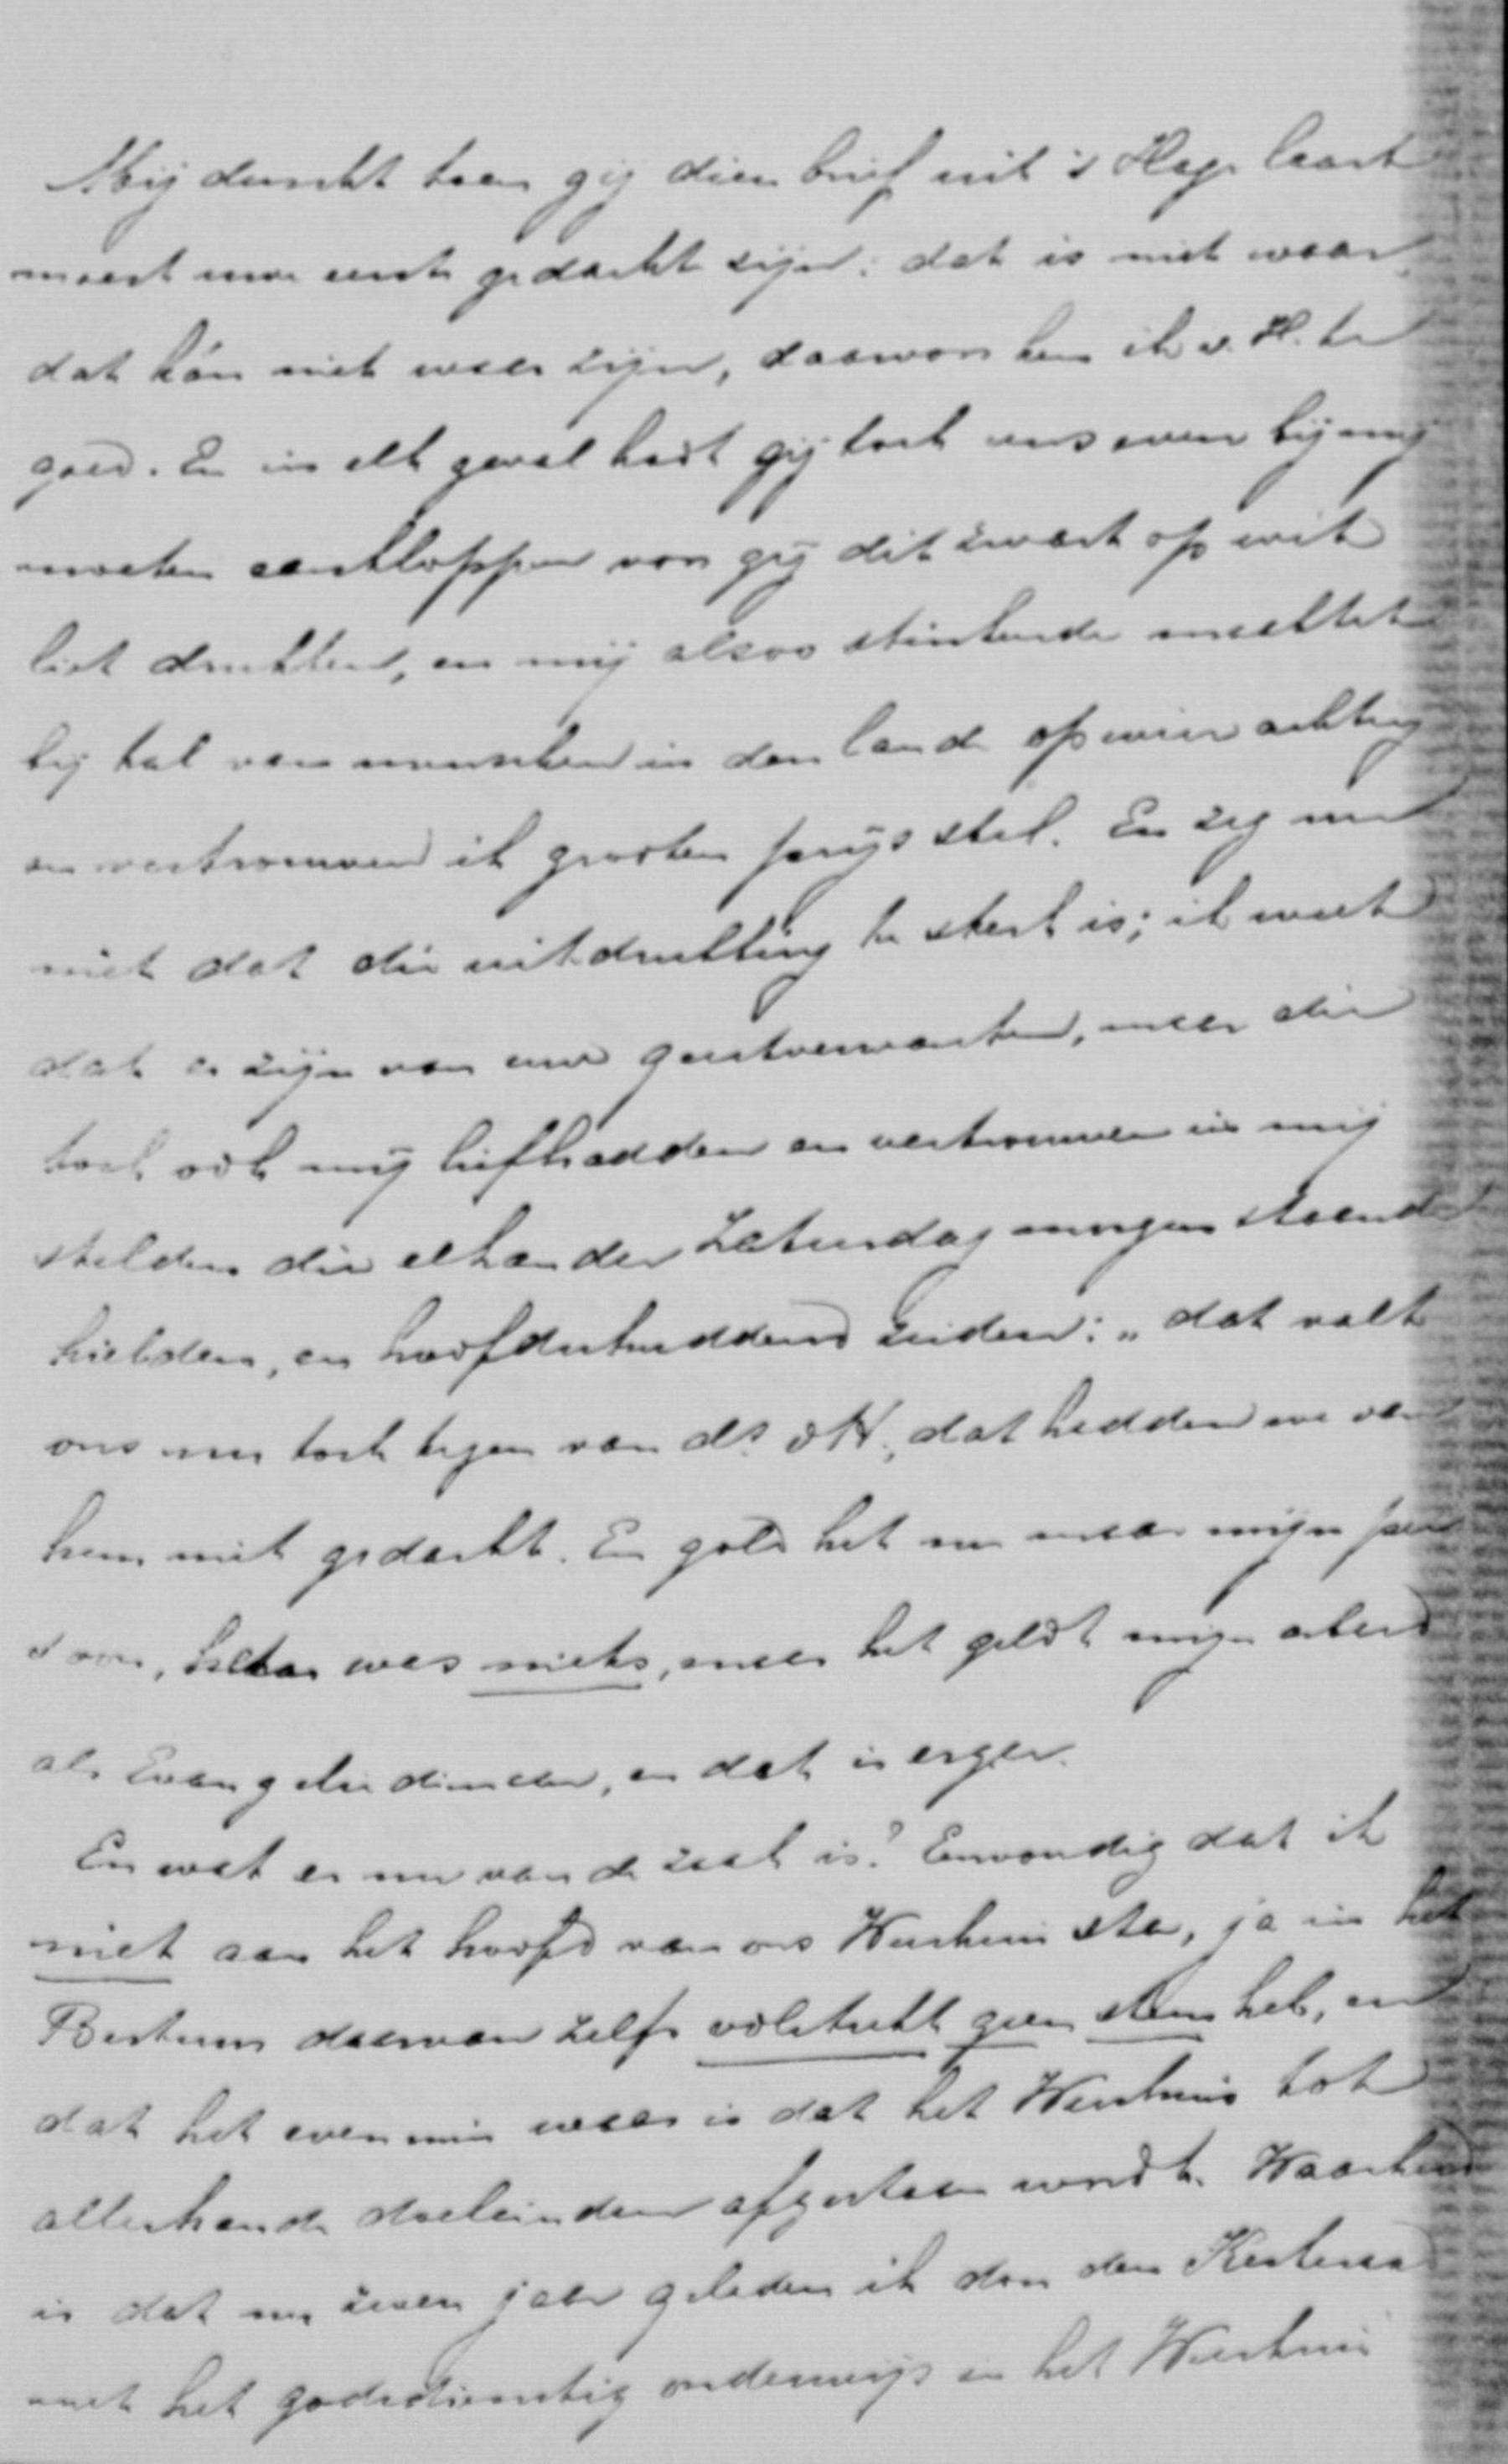 Mij dunkt toen gij dien brief uit 's Hage laast
moest uw eerste gedachte zijn: dat is niet waar,
dat kán niet waar zijn, daarvoor ken ik v. H. te
goed. En in elk geval hadt gij toch eens even bij mij
moeten aankloppen voor gij dit zwart op wit
liet drukken, en mij alzoo stinkende maaktet
bij tal van menschen in den lande op wier achting
en vertrouwen ik grooten prijs stel. En zeg nu
niet dat die uitdrukking te sterk is; ik weet
dat er zijn van uw geestverwanten, maar die
toch ook mij liefhadden en vertrouwen in mij
stelden die elkander Zaturdag morgen staande
hielden, en hoofdschuddend zeiden: „dat valt
ons nu toch tegen van ds. v H., dat hadden we van
hem niet gedacht. En gold het nu maar mijn per
soon, was niets, maar het geldt mijn arbeid
als Evangeliedienaar, en dat is erger.
En wat er nu van de zaak is? Eenvoudig dat ik
niet aan het hoofd van ons Weeshuis sta, ja in het
Bestuur daarvan zelfs volstrekt geen stem heb, en
dat het evenmin waar is dat het Weeshuis tot
allerhande doeleinden afgestaan wordt. Waarheid
is dat nu zeven jaar geleden ik door den Kerkeraad
met het godsdienstig onderwijs in het Weeshuis